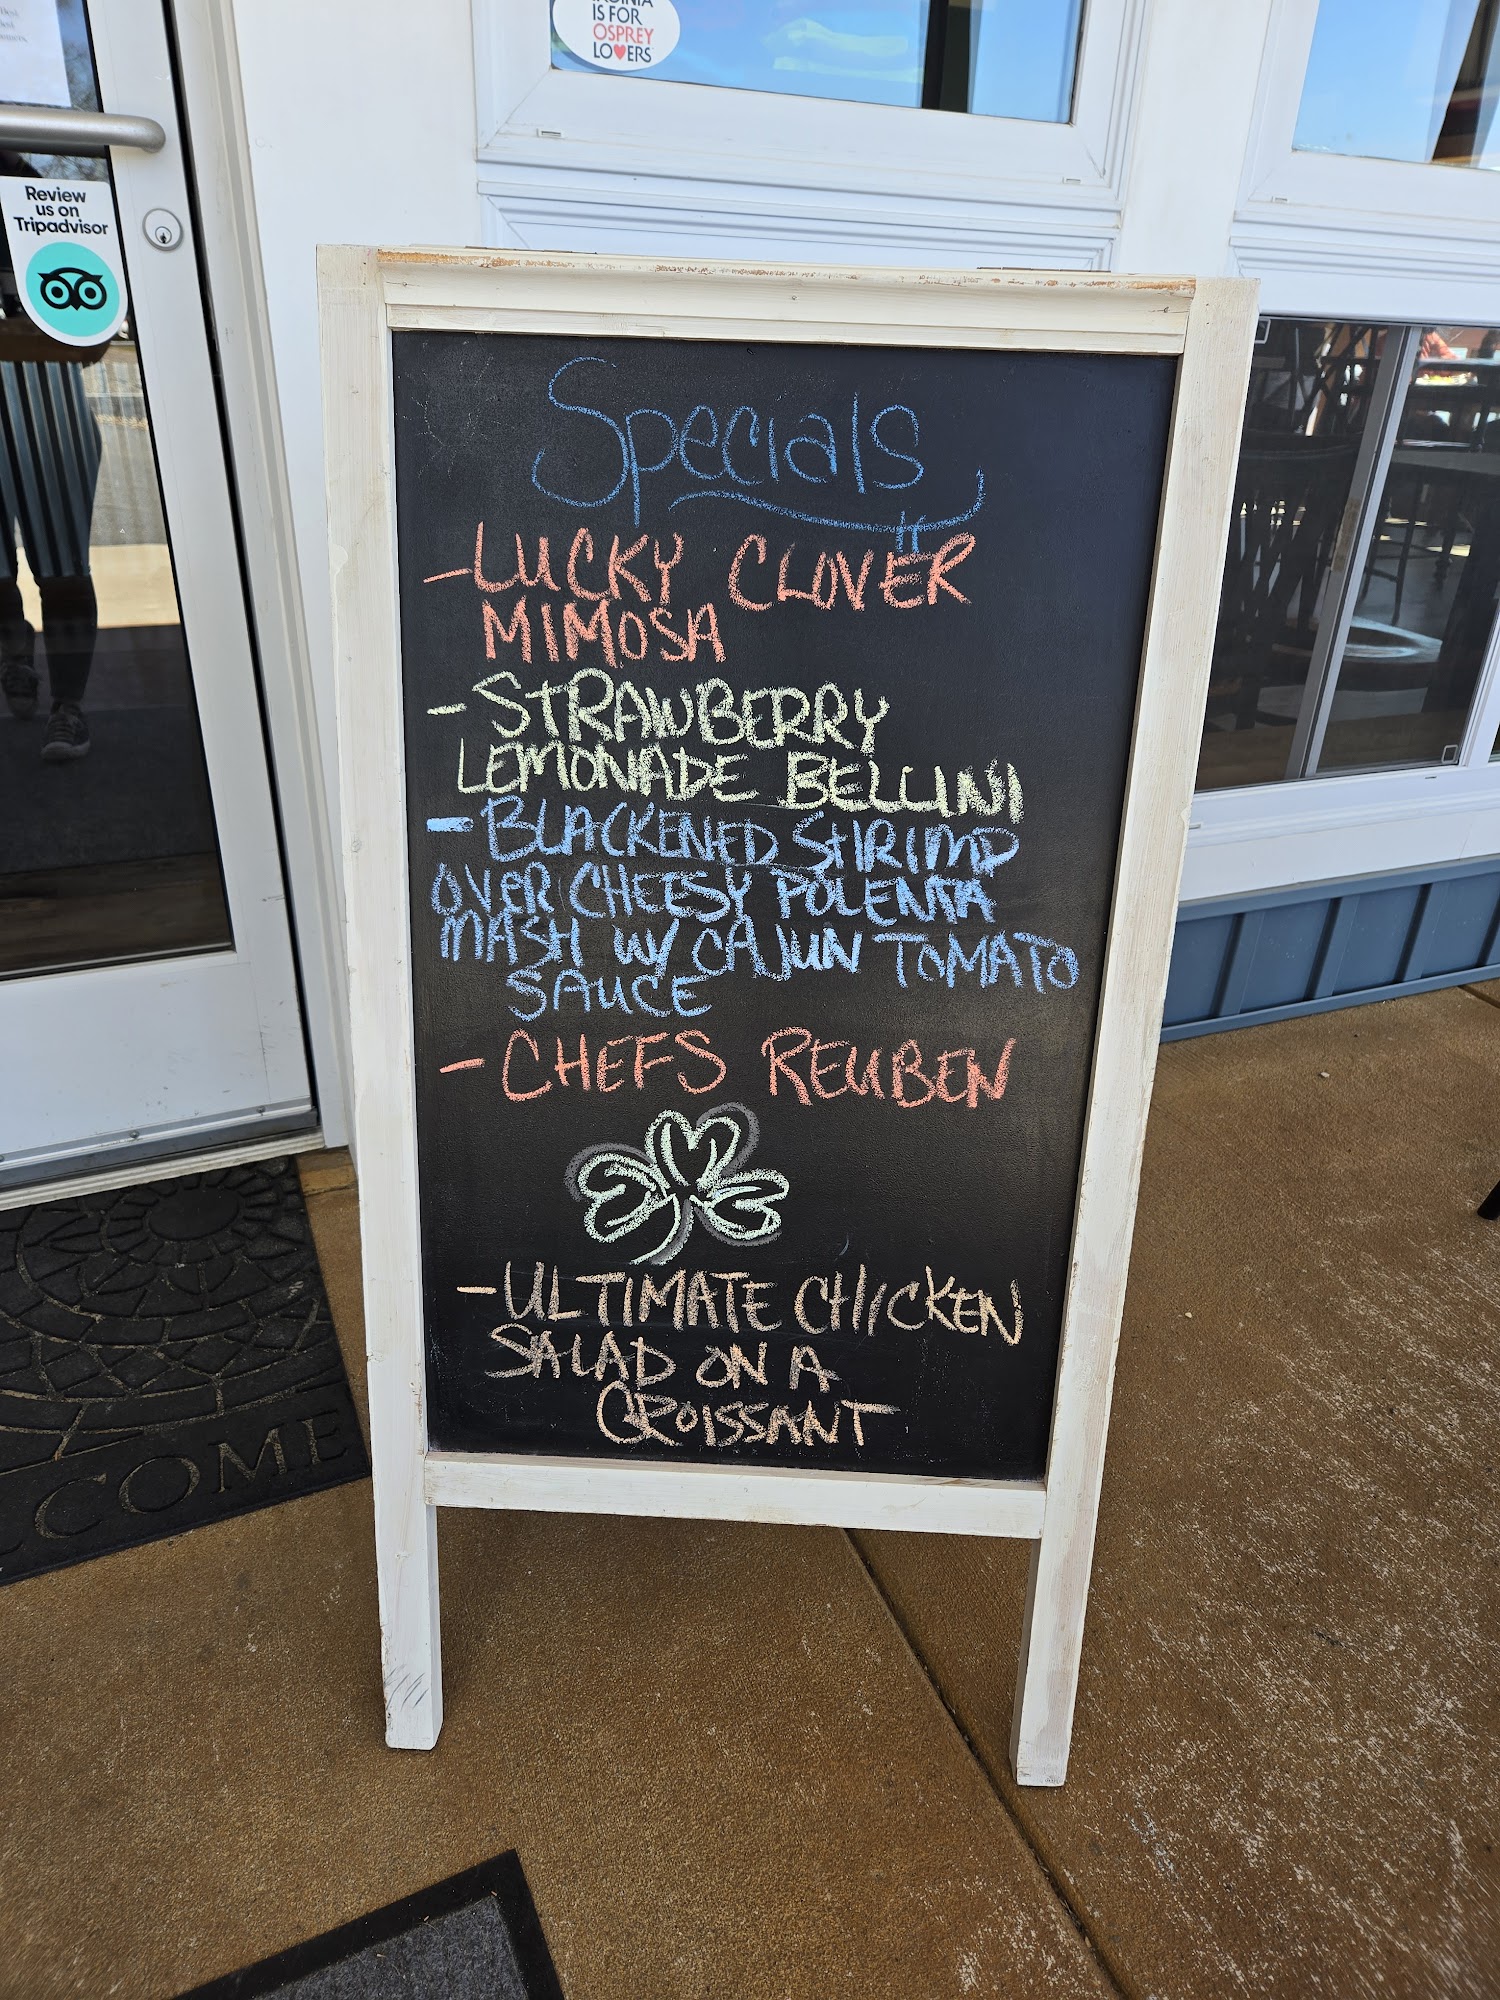 IS FOR
OSPREY
LOVERS
Review
us on
Tripadvisor
Specials
-LUCKY CLOVER
MIMOSA
-STRAWBERRY
LEMONADE BELLINI
-BLACKENED SHRIMP
OVER CHEESY POLENTA
MASH W/ CAJUN TOMATO
SAUCE
-CHEFS REUBEN
-ULTIMATE CHICKEN
SALAD ON A
CROISSANT
COME